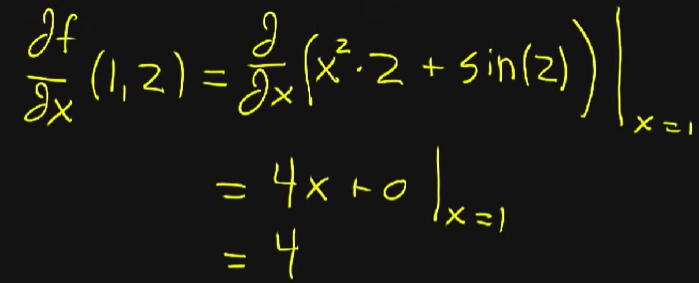 ∂f/∂x (1,2) = ∂/∂x (x²·2 + sin(2))|ₓ₌₁
= 4x + 0 |ₓ₌₁
= 4